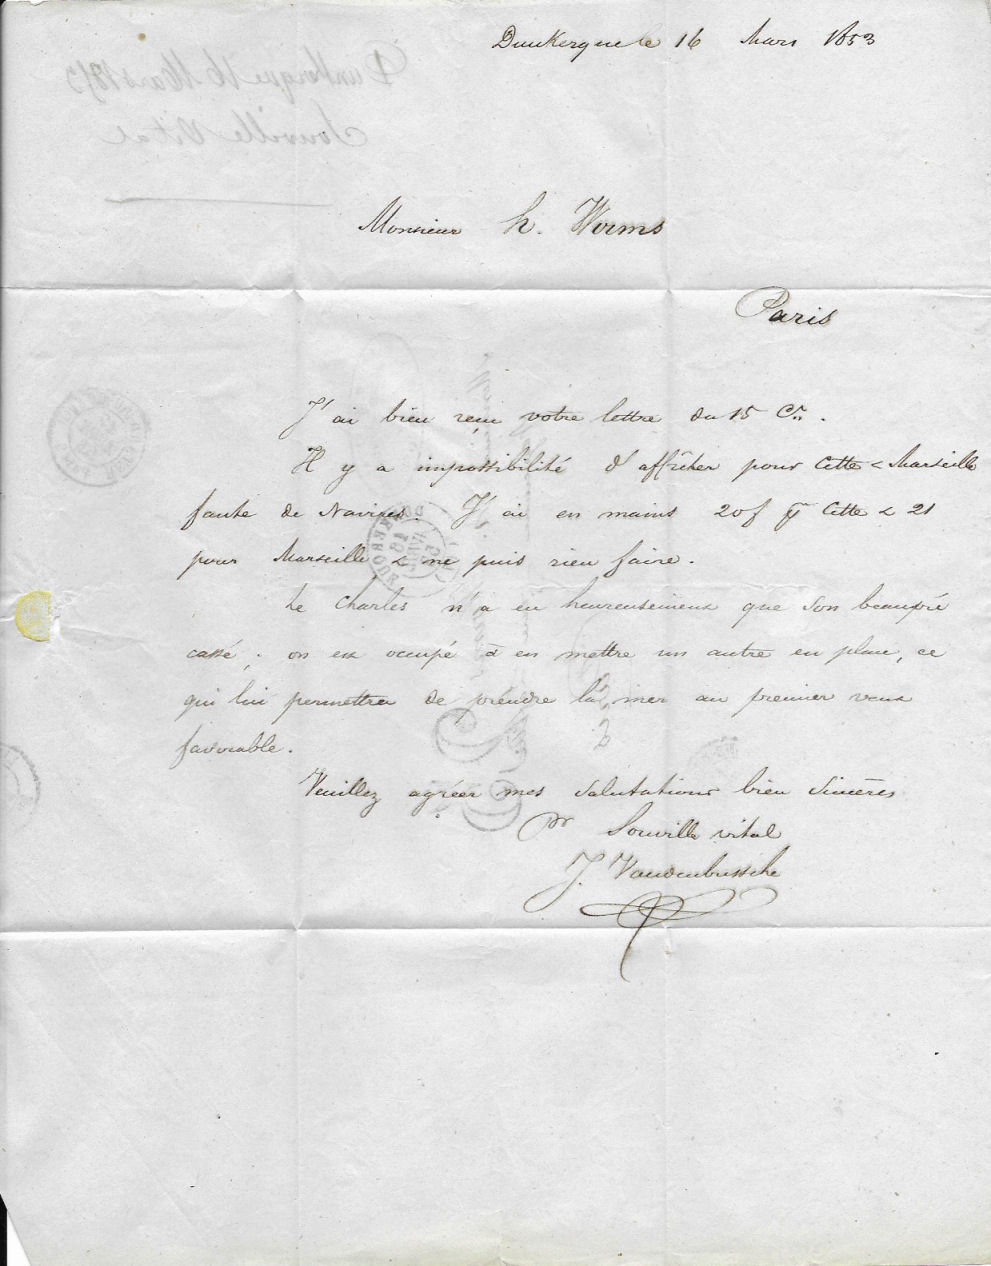 Dunkerque le 16 Mars 1853
Monsieur h. Worms
Paris
J'ai bien reçu votre lettre du 15 Ct.
Il y a impossibilité d'affréter pour Cette & Marseille
faute de Navires. J'ai en mains 20f pr Cette & 21
pour Marseille & ne puis rien faire.
Le Charles n'a eu heureusement que son beaupré
cassé; on est occupé à en mettre un autre en place, ce
qui lui permettra de prendre la mer au premier vent
favorable.
Veuillez agréer mes salutations bien sincères
pr Souville vital
J. Vandenbussche
Dunkerque 16 Mars 1853
Souville Vital
DUNKERQUE